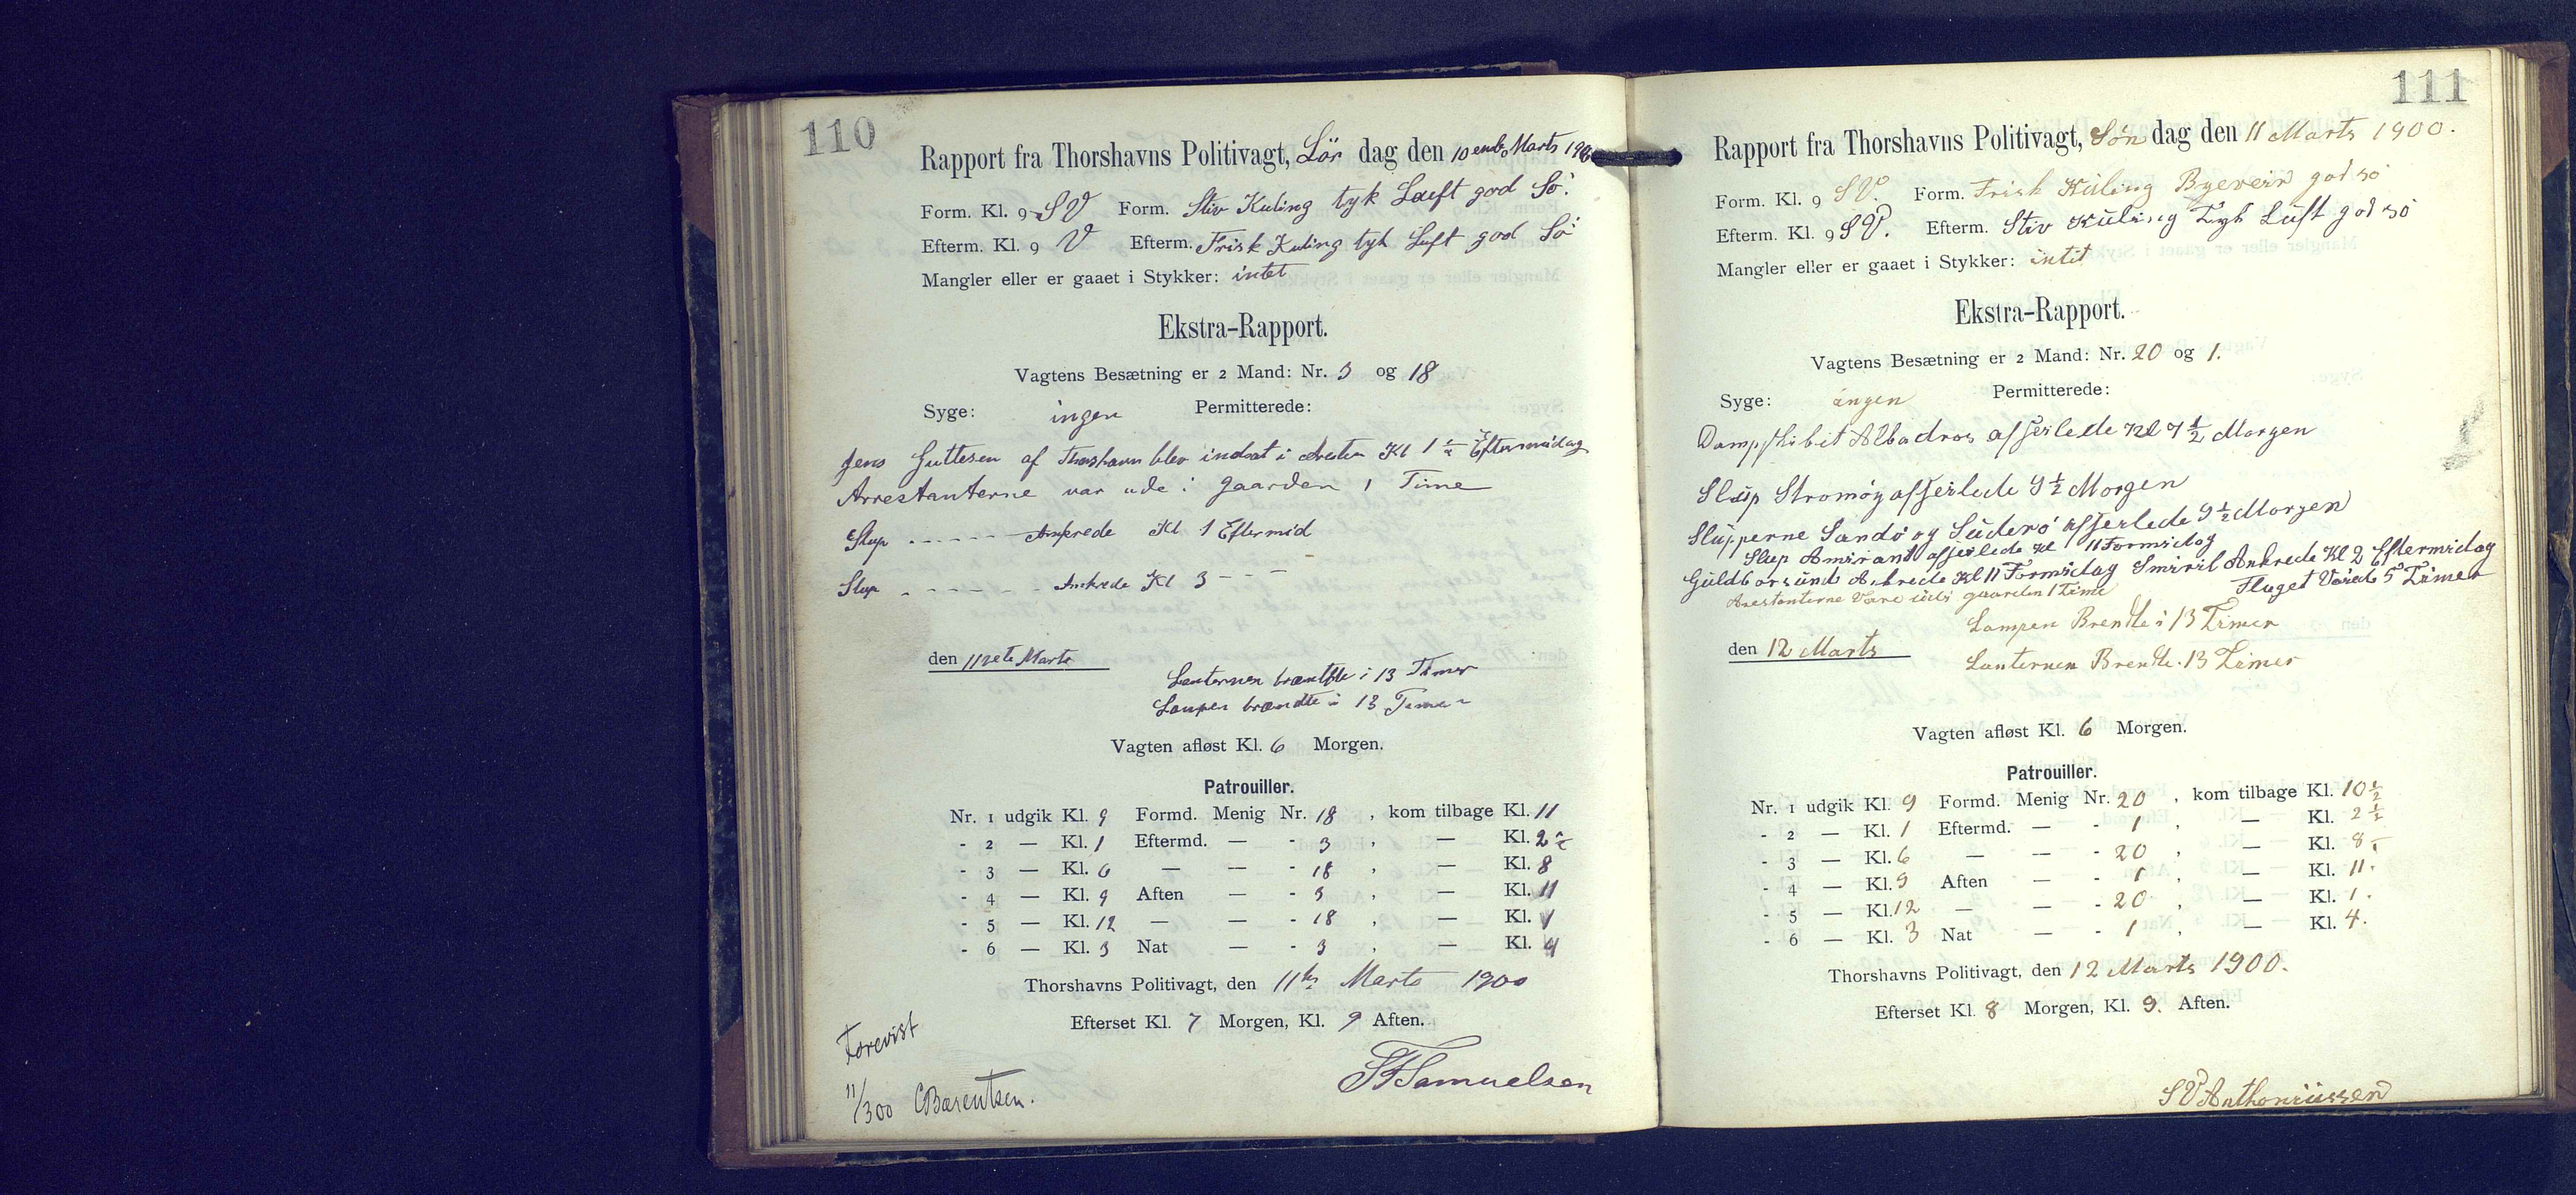 110
Rapport fra Thorshavns Politivagt, Lör dag den 10ende Marts 190
Form. Kl. 9 SV Form. Stiv Kuling tyk Luft god Sö.
Efterm. Kl. 9 V Efterm. Frisk Kuling tyk Luft god Sö
Mangler eller er gaaet i Stykker: intet
Ekstra-Rapport.
Vagtens Besætning er 2 Mand: Nr. 3 og 18
Syge: ingen Permitterede:
Jens Guttesen af Thorshavn blev indsat i Kl 1 1/2 Eftermidag
Arrestanterne var ude i gaarden 1 Time
Slup - - - - - Ankrede Kl 1 Eftermid
Slup - - - - - - Ankrede Kl 3 - - -
den 11te Marts
Lanternen brændte i 13 Timer
Lampen brændte i 13 Timer
Vagten afløst Kl. 6 Morgen.
Patrouiller.
Nr. 1 udgik Kl. 9 Formd. Menig Nr. 18 , kom tilbage Kl. 11
- 2 — Kl. 1 Eftermd. — - 3 , — Kl. 2 1/2
- 3 — Kl. 6 — — - 18 , — Kl. 8
- 4 — Kl. 9 Aften — - 3 , — Kl. 11
- 5 — Kl. 12 — — - 18 , — Kl. 1
- 6 — Kl. 3 Nat — - 3 , — Kl. 4
Thorshavns Politivagt, den 11te Marts 1900
Efterset Kl. 7 Morgen, Kl. 9 Aften.
Forevist
11/300 CBærentsen.
SFSamuelsen
111
Rapport fra Thorshavns Politivagt, Søn dag den 11 Marts 1900.
Form. Kl. 9 SV. Form. Frisk Kuling Byeveir god sö
Efterm. Kl. 9 SV. Efterm. Stiv Kuling Tyk Luft god sö
Mangler eller er gaaet i Stykker: intit
Ekstra-Rapport.
Vagtens Besætning er 2 Mand: Nr. 20 og 1.
Syge: ingen Permitterede:
Dampskibet Albadros afseilede Kl 7 1/2 Morgen
Slup Stromöy afseilede 9 1/2 Morgen
Slupperne Sandö og Suderö afseilede 9 1/2 Morgen
Slup afseilede Kl 11 Formidag
Guldborsund Ankrede Kl 11 Formidag Smiril Ankrede Kl 2 Eftermidag
Arestanterne Vare i gaarden 1 Time Flaget Vaiede 5 Timer
Lampen Brendte i 13 Timer
den 12 Marts
Lanternen Brendte. 13 Timer
Vagten afløst Kl. 6 Morgen.
Patrouiller.
Nr. 1 udgik Kl. 9 Formd. Menig Nr. 20 , kom tilbage Kl. 10 1/2
- 2 — Kl. 1 Eftermd. — - 1 , — Kl. 2 1/2
- 3 — Kl. 6 — — - 20 , — Kl. 8.
- 4 — Kl. 9 Aften — - 1 , — Kl. 11.
- 5 — Kl. 12 — — - 20 , — Kl. 1.
- 6 — Kl. 3 Nat — - 1 , — Kl. 4.
Thorshavns Politivagt, den 12 Marts 1900.
Efterset Kl. 8 Morgen, Kl. 9. Aften.
SVAnthoniussen